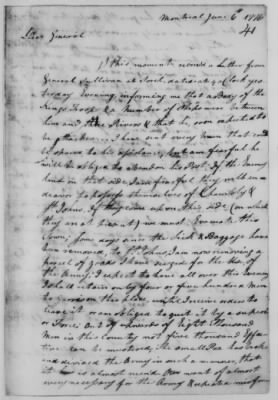 Montreal June 6th 1776
41
Dear General
This moment receiv'd a Letter from
General Sullivan at Sorel dated at 4 oClock yes
terday Evening, informing me that a Body of the
Kings Troops & Number of between
him and the Rivers & that he soon expected to
be attacked. I have sent every Man that could
be spared to his assistance, but am fearful he
will be obliged to abandon his Post. If the Enemy
land on this side I am fearful they will en
deavor to possess themselves of Chambly &
St Johns. If they come upon this side (on which
they are at present) we must Evacuate this
Town, four days since the Sick & Baggage have
been removed, to St Johns, I am now removing a
parcel of Goods I have seized for the Use of
the Army, I expect to have all over this Evening
I shall retain only four or five hundred Men
to garrison this place, until I receive orders to
leave it or am obliged to quit it by a superior
Force: Out of upwards of Eight thousand
Men in this Country not five thousand Effec
tive can be mustered; the small Pox has broke
and divided the Army in such a manner, that
it is almost ruined Our want of almost
every necessary for the Army & repeated misfor